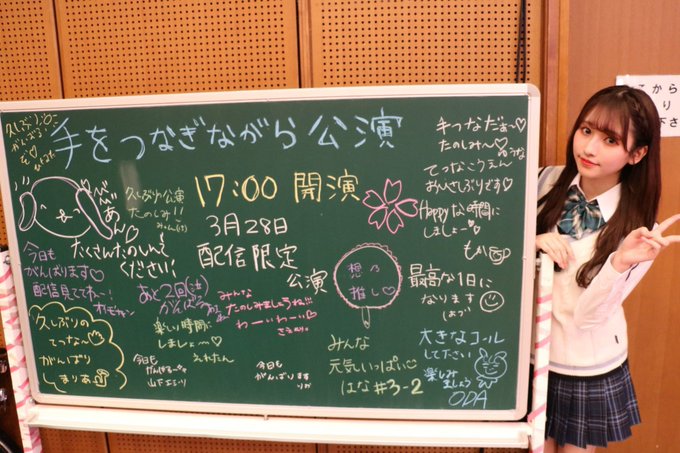 手をつなぎながら公演
17:00 開演
3月28日
配信限定
公演
久しぶり
がんばる
ぞ♡
べぁぁん
たくさんたのしんで
ください!
久しぶり公演
たのしみ!!
今日も
がんばります♡
配信見ててね〜!
あと2回
がんばろ
みんな
たのしみましょうね
わーいわーい
久しぶりの
てつな〜
がんばり
まりあ
楽しい時間に
しましょ〜♡
えれたん
今日も
山下エミリ
今日も
がんばります
りか
想乃
推し♡
みんな
元気いっぱい
はな#3-2
手つなだぁ〜♡
たのしみ〜
てつなこうえん
おひさしぶりです♡
Happyな時間に
しましょー♡
もか
最高な1日に
なります
大きなコール
してださい
楽しみ
ましょう
ODA
こから
り
下さ